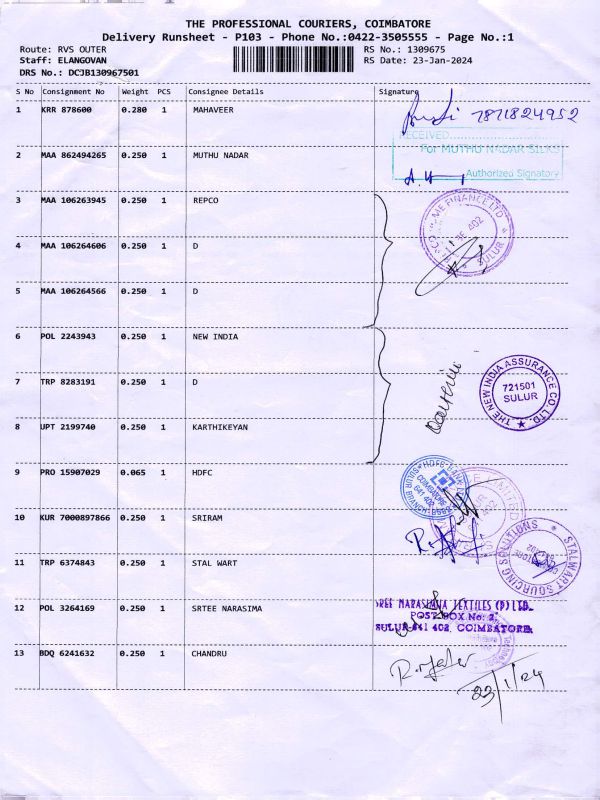 THE PROFESSIONAL COURIERS, COIMBATORE
Delivery Runsheet - P103 - Phone No.:0422-3505555 - Page No.:1
Route: RVS OUTER RS No.: 1309675
Staff: ELANGOVAN RS Date: 23-Jan-2024
DRS No.: DCJB130967501
S No Consignment No Weight PCS Consignee Details Signature
1 KRR 878600 0.280 1 MAHAVEER 7871824952
RECEIVED
For MUTHU NADAR SILKS
2 MAA 862494265 0.250 1 MUTHU NADAR
Authorized Signatory
3 MAA 106263945 0.250 1 REPCO
SULUR
4 MAA 106264606 0.250 1 D
5 MAA 106264566 0.250 1 D
6 POL 2243943 0.250 1 NEW INDIA
THE NEW INDIA ASSURANCE CO. LTD.
721501
SULUR
7 TRP 8283191 0.250 1 D
8 UPT 2199740 0.250 1 KARTHIKEYAN
9 PRO 15907029 0.065 1 HDFC
HDFC BANK
COIMBATORE
641 402
SULUR BRANCH
10 KUR 7000897866 0.250 1 SRIRAM
STALWART SOURCING SOLUTIONS
11 TRP 6374843 0.250 1 STAL WART
12 POL 3264169 0.250 1 SRTEE NARASIMA
TEXTILES (P) LTD.
POST BOX No: 2
SULUR-641 402, COIMBATORE
13 BDQ 6241632 0.250 1 CHANDRU
23/1/24